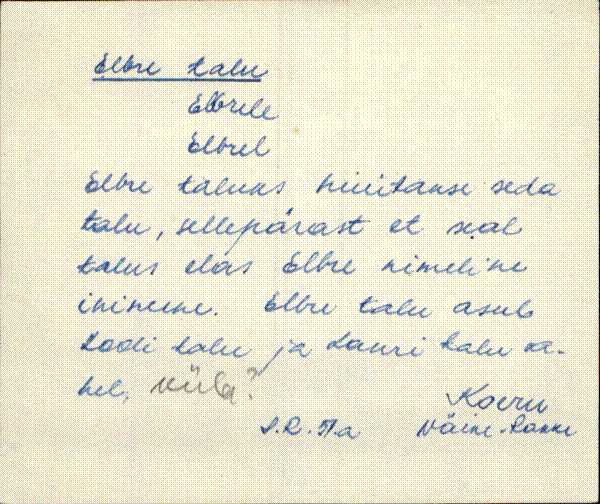 Elbre talu
Elbrele
Elbrel
Elbre taluks hüütakse seda
talu, sellepärast et seal
talus elas Elbre nimeline
inimene. Elbre talu asub
Loodi talu ja Lauri talu va-
hel, Küla?
Koeru
Väike-